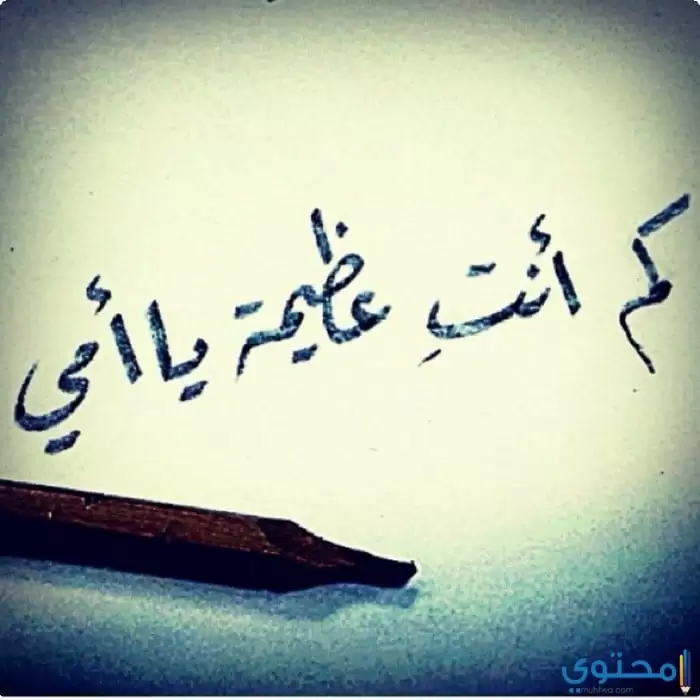 كم أنتِ عظيمة يا أمي
محتوى
muhtwa.com